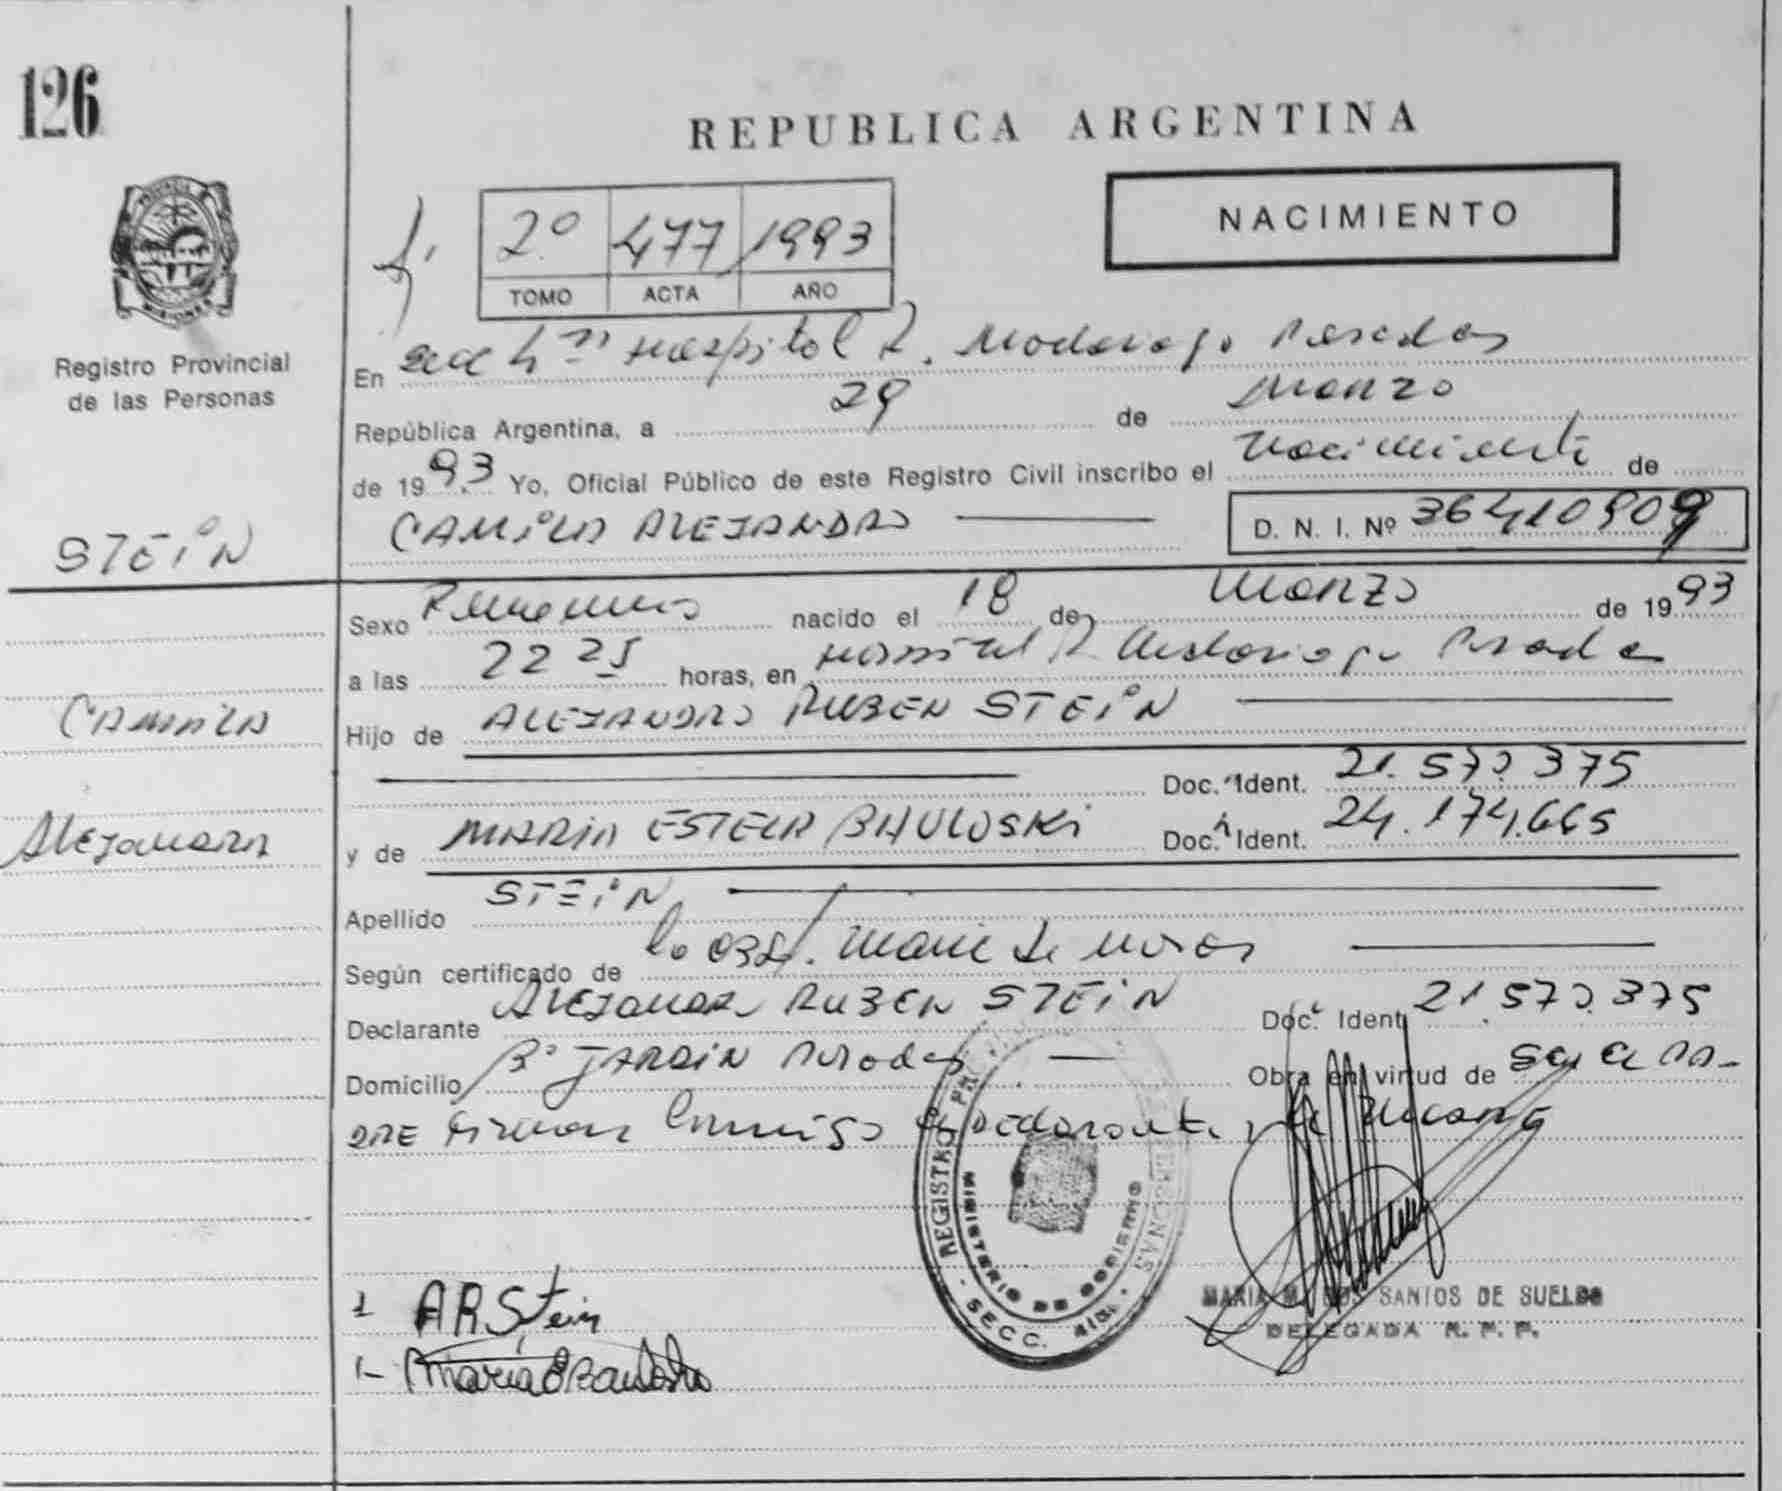 126
REPUBLICA ARGENTINA
NACIMIENTO
2º 477 1993
TOMO ACTA AÑO
Registro Provincial
de las Personas
En Secc 4ta Hospital R. Madariaga Posadas
República Argentina, a 29 de Marzo
de 1993 Yo, Oficial Público de este Registro Civil inscribo el Nacimiento de
STEIN
CAMILA ALEJANDRA D. N. I. Nº 36410909
Sexo Femenino nacido el 18 de Marzo de 1993
a las 22 25 horas, en Hospital R. Madariaga Posadas
CAMILA
Hijo de ALEJANDRO RUBEN STEIN
Doc. Ident. 21.572.375
Alejandra
y de MARIA ESTELA BAULOSKI Doc. Ident. 24.174.665
Apellido STEIN
Según certificado de la obst. de
Declarante Alejandro RUBEN STEIN Doc. Ident. 21.572.375
Domicilio Bº JARDIN Posadas Obra en virtud de ser el PA-
DRE Firman Conmigo el Declarante y la
REGISTRO DE LAS PERSONAS
MINISTERIO DE GOBIERNO
SECC.
1 ARStein
1- María E Bauloski
MARIA M. DOS SANTOS DE SUELDO
DELEGADA R. P. P.